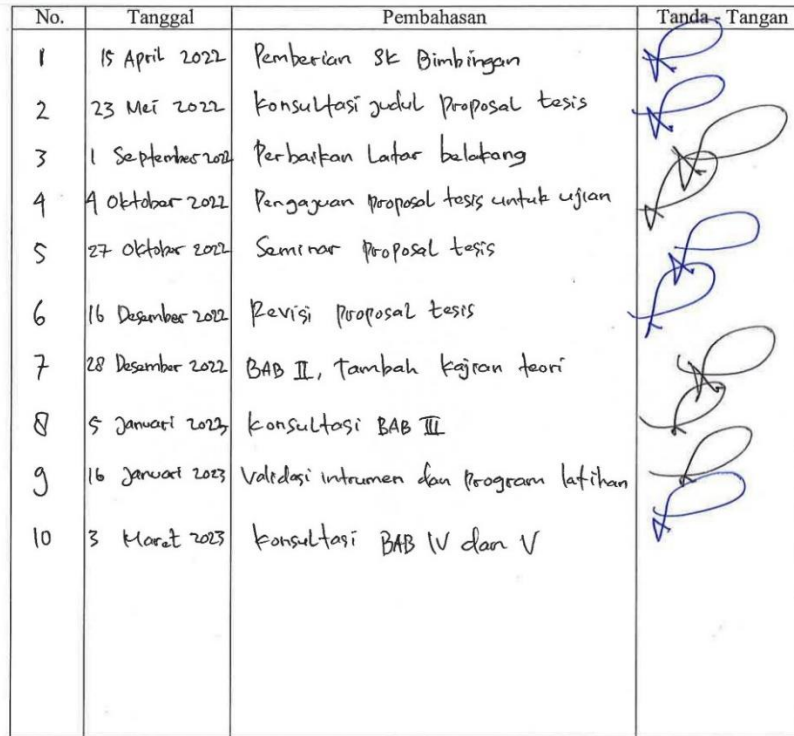 No. Tanggal Pembahasan Tanda - Tangan
1 15 April 2022 Pemberian SK Bimbingan
2 23 Mei 2022 Konsultasi judul Proposal tesis
3 1 September 2022 Perbaikan Latar belakang
4 4 Oktober 2022 Pengajuan proposal tesis untuk ujian
5 27 Oktober 2022 Seminar proposal tesis
6 16 Desember 2022 Revisi proposal tesis
7 28 Desember 2022 BAB II, Tambah kajian teori
8 5 Januari 2023 Konsultasi BAB III
9 16 Januari 2023 Validasi intrumen dan Program latihan
10 3 Maret 2023 Konsultasi BAB IV dan V